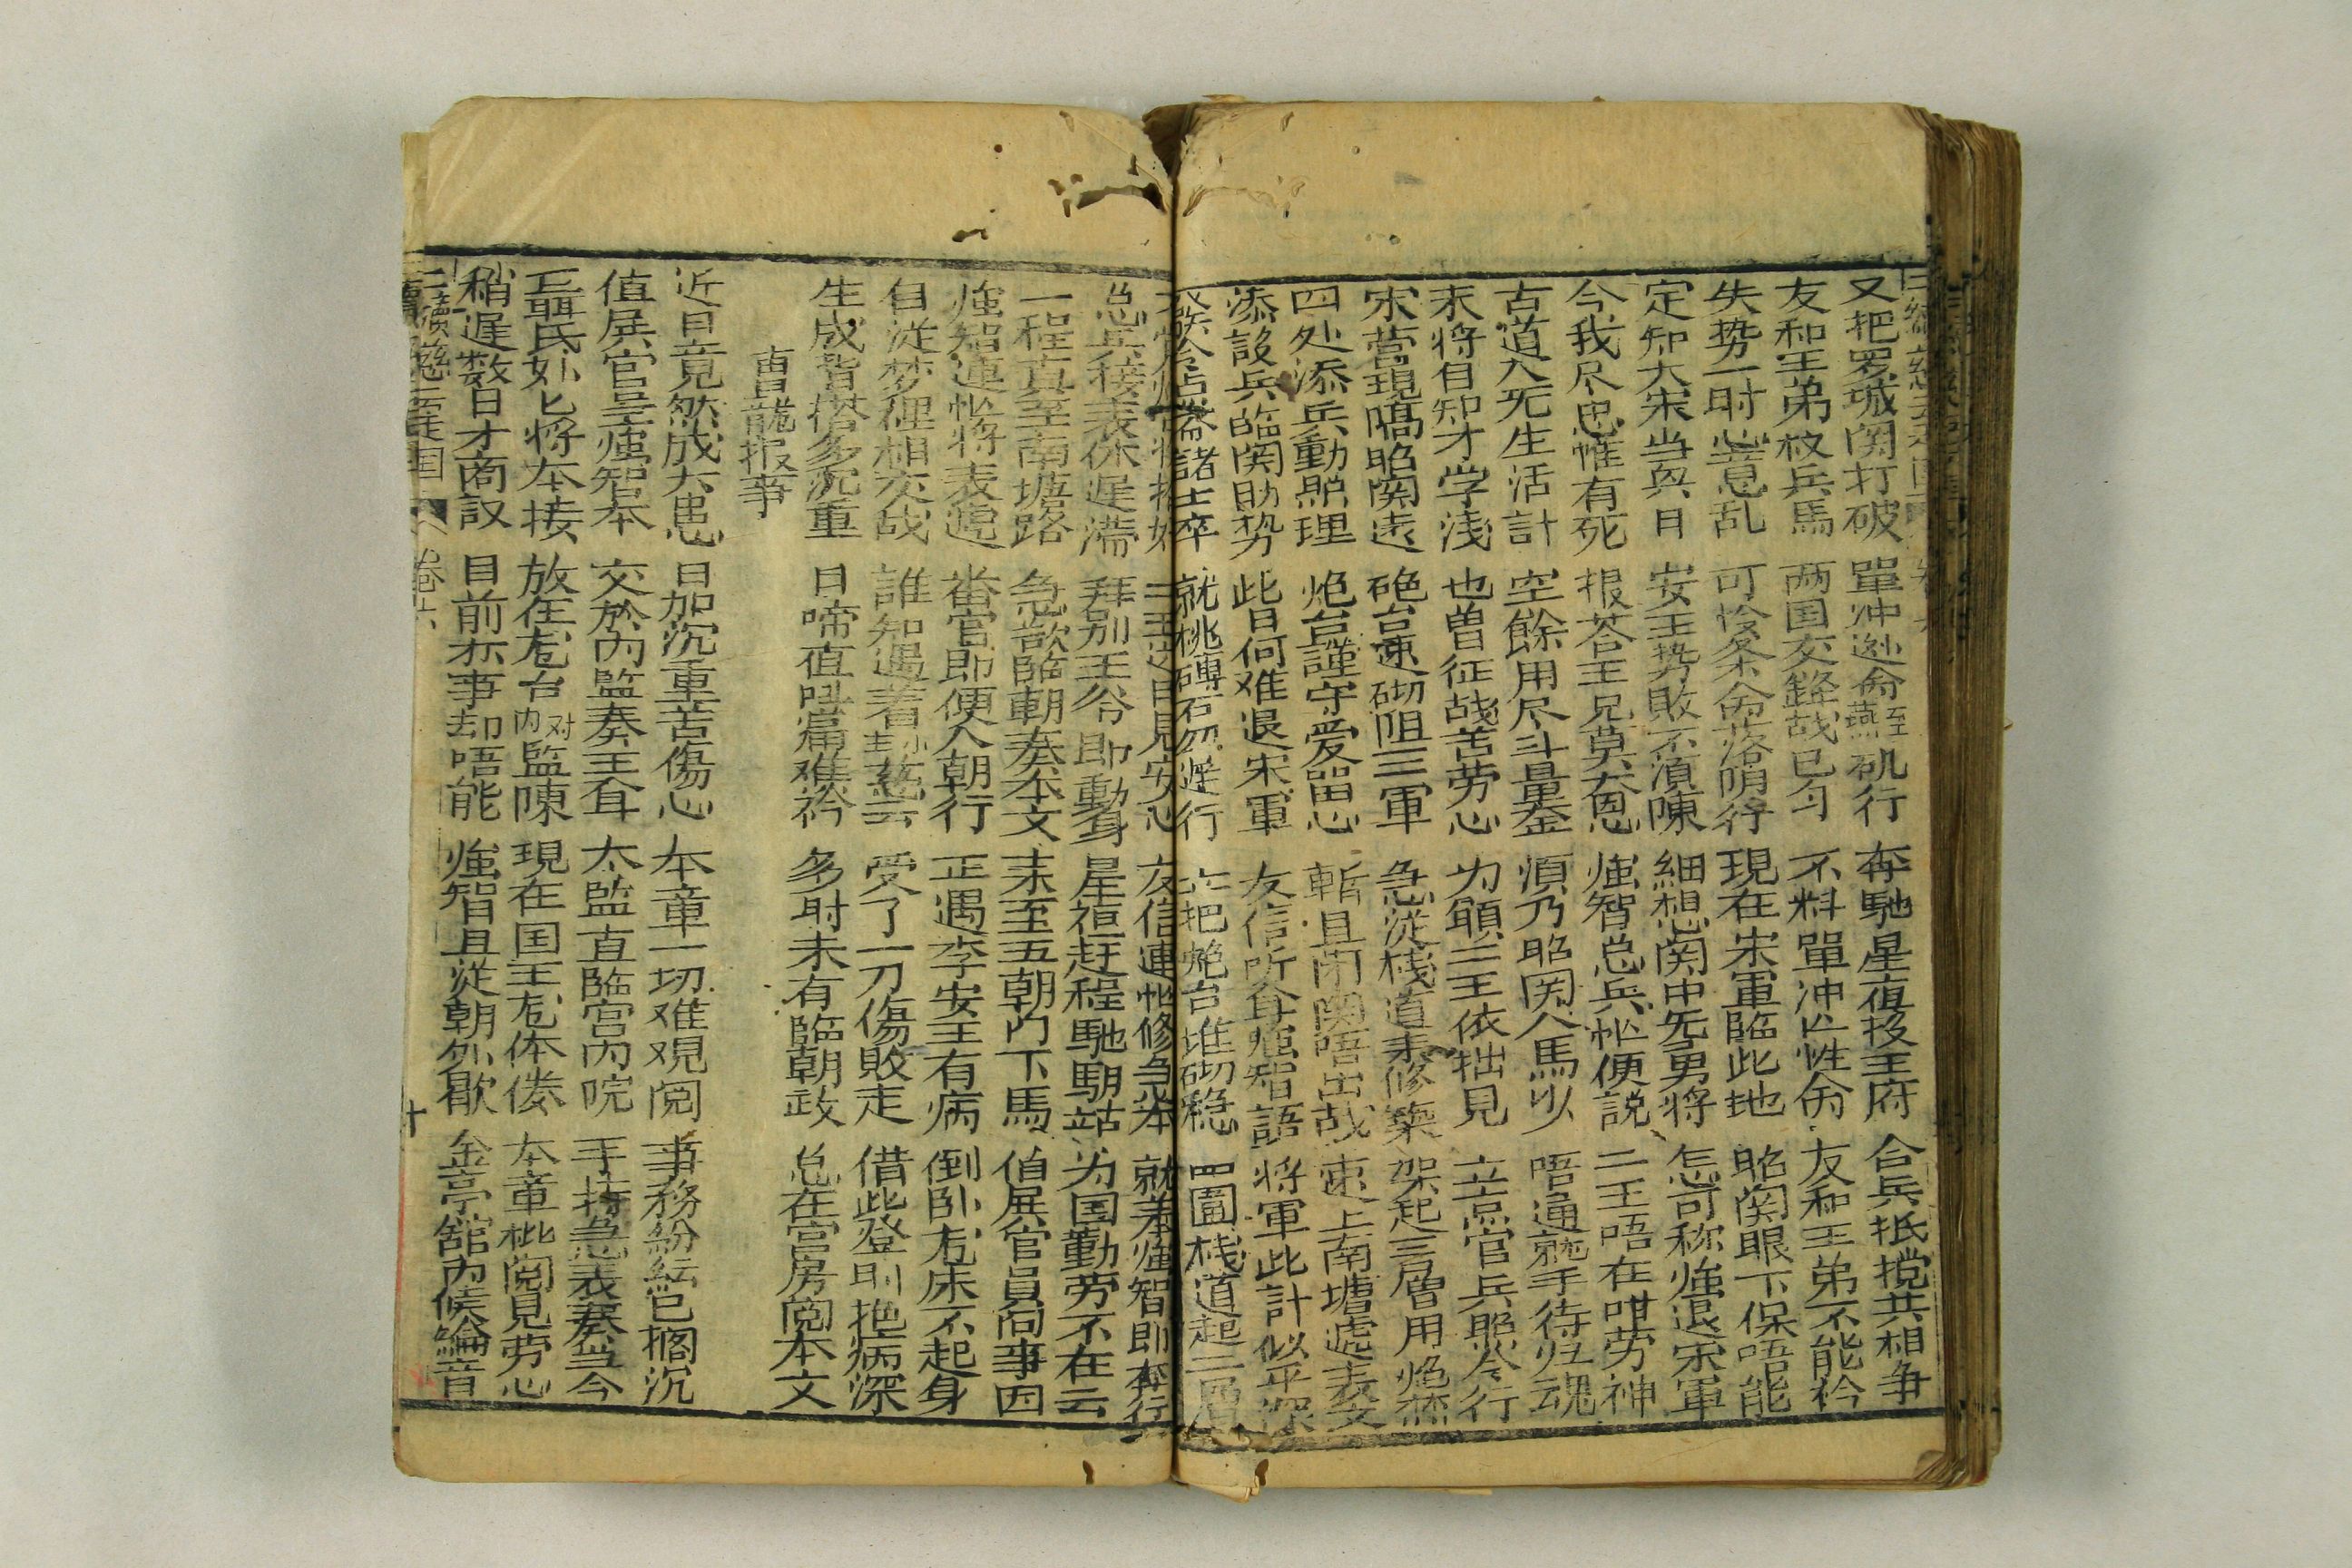 又把罗城関打破 單冲逊命至燕矶行 奔馳星夜投王府 合兵抵搅共相争
友和王弟校兵馬 两国交鋒战已匀 不料單冲亡性命 友和王弟不能衿
失势一时心意乱 可怜条命落阴行 現在宋軍臨此地 昭関眼下保唔能
定知大宋当與日 安王势敗不須陳 細想関中旡勇将 怎可称強退宋軍
今我尽忠惟有死 报荅王兄莫大恩 強智总兵忙便説 二王唔在咁劳神
古道入死生活計 空餘用尽斗量金 須乃昭関人馬以 唔通就手待归魂
末将自知才学浅 也曽征战苦劳心 为頋三王依拙見 立点官兵照令行
宋营現隔昭関遠 砲台速砌阻三軍 急從栈道来修築 架起三層用炮
四处添兵動照理 炮台謹守爱畄心 暫且闭関唔出战 速上南塘遞表文
添設兵臨関助势 此日何难退宋軍 友信听聞強智語 将軍此計似乎深
諸士卒 就挑磚石勿遅行 六把炮台堆砌穏 四圍栈道起二層
友信連忙修急本 就差強智即奔行
总兵接表休遅滞 拜别王爷即動身 星夜赶程馳駅站 为国勤劳不在云
一程直至南塘路 急欲臨朝奏本文 来至五朝门下馬 值展官員问事因
強智連忙将表遞 番官即便入朝行 正遇李安王有病 倒卧龙床不起身
自従梦裡相交战 誰知遇着刘慈云 受了一刀傷敗走 借此登时抱病深
生成背搭多沉重 日啼直叫痛难衿 多时未有臨朝政 总在宮房閲本文
曺龍报事
近日竟然成大患 日加沉重苦傷心 本章一切难观閲 事務紛紜已搁沉
值展官呈強智本 交於内監奏王聞 太監直臨宫内院 手持急表奏当今
将本接 放在龙台对内監陳 現在国王龙体倦 本章批閲見劳心
稍遅数日才商议 目前乑事却唔能 強智且從朝外歇 金亭舘内候綸音
卷六
十